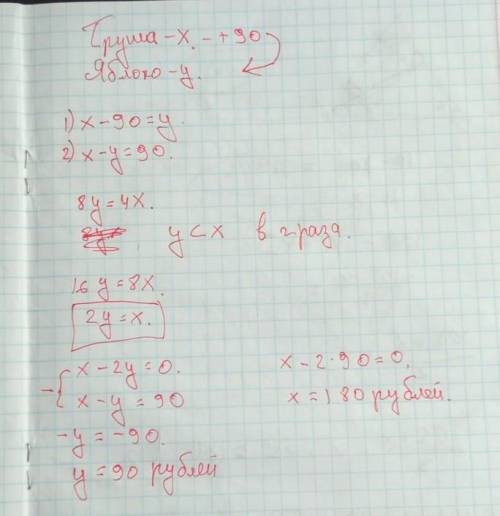 Груша - x. - +90
Яблоко - y.
1) x - 90 = y.
2) x - y = 90.
8y = 4x.
y < x в 2 раза.
16 y = 8x.
2y = x.
x - 2y = 0.
x - y = 90
-y = -90.
y = 90 рублей
x - 2·90 = 0.
x = 180 рублей.